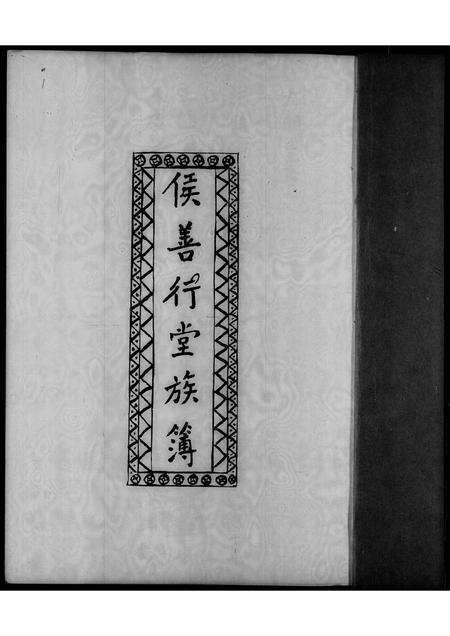 侯善行堂族簿